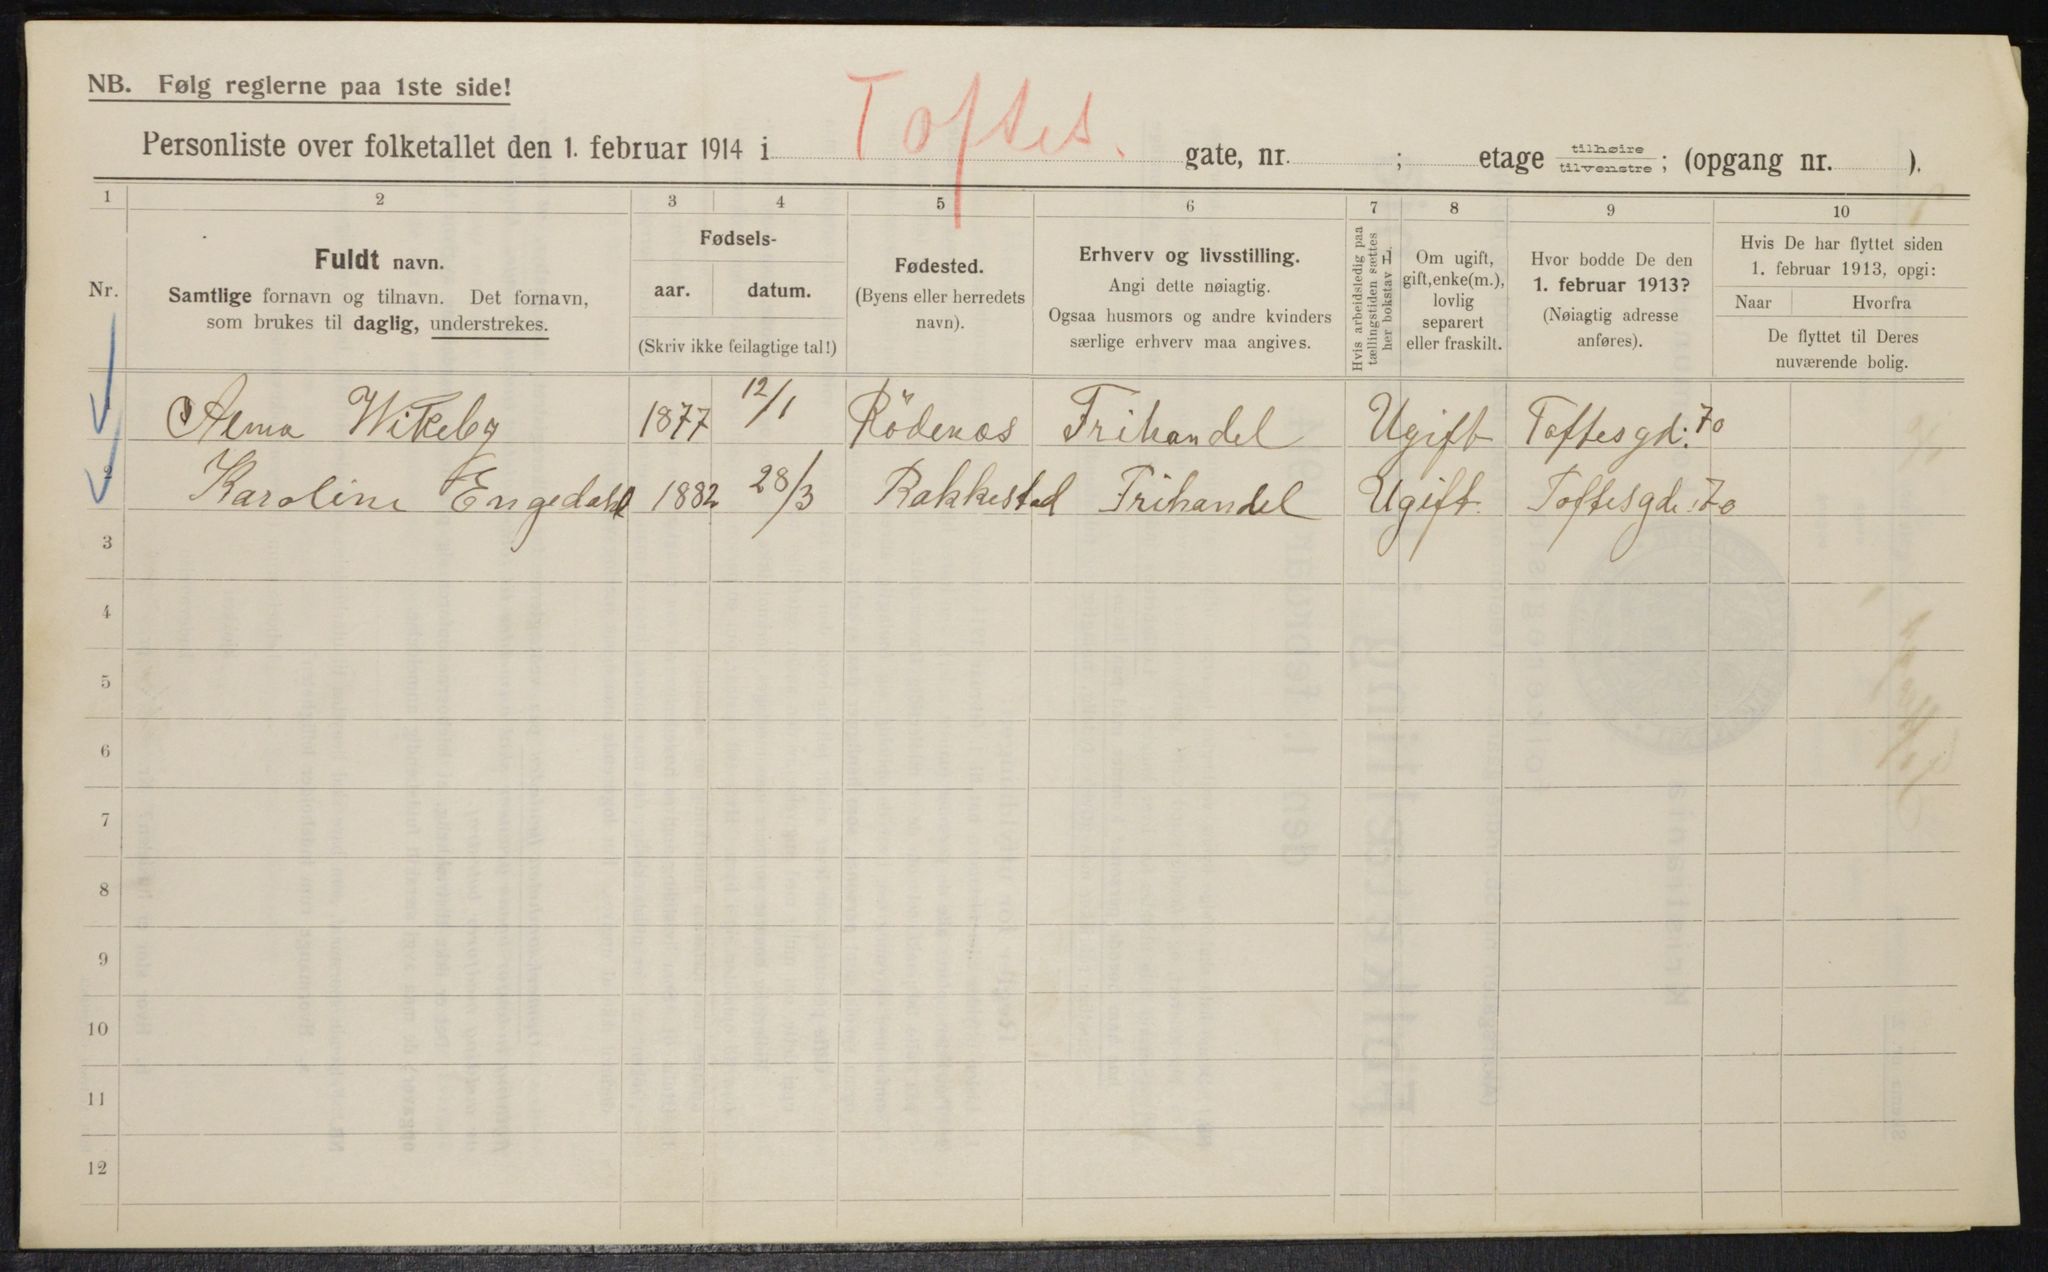 NB. Følg reglerne paa 1ste side!
Personliste over folketallet den 1. februar 1914 i Toftes. gate, nr. ; etage tilhøire/tilvenstre; (opgang nr. ).
1 2 3 4 5 6 7 8 9 10
Nr.
Fuldt navn.
Samtlige fornavn og tilnavn. Det fornavn,
som brukes til daglig, understrekes.
Fødsels-
aar. datum.
(Skriv ikke feilagtige tal!)
Fødested.
(Byens eller herredets
navn).
Erhverv og livsstilling.
Angi dette nøiagtig.
Ogsaa husmors og andre kvinders
særlige erhverv maa angives.
Hvis arbeidsledig paa
tællingstiden sættes
her bokstav L.
Om ugift,
gift, enke(m.),
lovlig
separert
eller fraskilt.
Hvor bodde De den
1. februar 1913?
(Nøiagtig adresse
anføres).
Hvis De har flyttet siden
1. februar 1913, opgi:
Naar Hvorfra
De flyttet til Deres
nuværende bolig.
1 Alma Wikeby 1877 12/1 Rödenæs Frihandel Ugift Toftesgd. 70
2 Karoline Engedahl 1882 28/3 Rakkestad Frihandel Ugift Toftesgde. 70
3
4
5
6
7
8
9
10
11
12